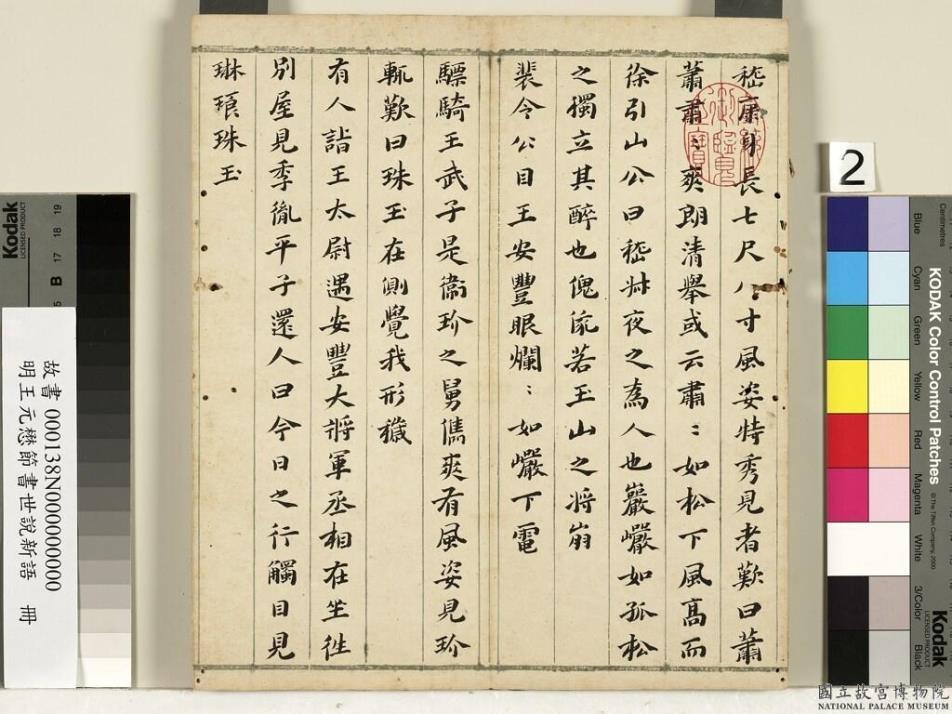 嵇康身長七尺八寸風姿特秀見者歎曰蕭
蕭肅〻爽朗清舉或云肅〻如松下風高而
徐引山公曰嵇叔夜之為人也巖巖如孤松
之獨立其醉也傀俄若玉山之將崩
裴令公目王安豐眼爛〻如巖下電
驃騎王武子是衞玠之舅儁爽有風姿見玠
輒歎曰珠玉在側覺我形穢
有人詣王太尉遇安豐大將軍丞相在坐往
別屋見季胤平子還人曰今日之行觸目見
琳琅珠玉
故書 000138N000000000
明王元懋節書世說新語 冊
2
Kodak
LICENSED PRODUCT
B 17 18 19
Centimetres
Blue
Cyan
Green
Yellow
Red
Magenta
White
3/Color
Black
KODAK Color Control Patches
© The Tiffen Company, 2000
Kodak
LICENSED PRODUCT
國立故宮博物院
NATIONAL PALACE MUSEUM